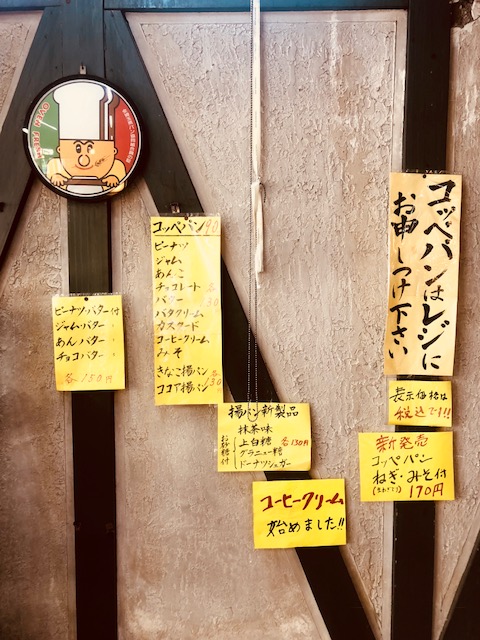 OVEN FRESH BREAD
ピーナツバター付
ジャムバター
あんバター
チョコバター
各150円
コッペパン 90
ピーナツ
ジャム
あんこ
チョコレート 各
バター 130
バタクリーム
カスタード
コーヒークリーム
みそ
きなこ揚パン 各
ココア揚パン 130
揚パン新製品
抹茶味
お砂糖付
上白糖 各130円
グラニュー糖
ドーナツシュガー
コーヒークリーム
始めました!!
コッペパンはレジに
お申しつけ下さい
表示価格は
税込です!!
新発売
コッペパン
ねぎ・みそ付
170円